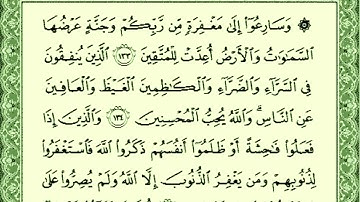 ۞ وَسَارِعُوٓا۟ إِلَىٰ مَغْفِرَةٍ مِّن رَّبِّكُمْ وَجَنَّةٍ عَرْضُهَا
ٱلسَّمَٰوَٰتُ وَٱلْأَرْضُ أُعِدَّتْ لِلْمُتَّقِينَ ١٣٣ ٱلَّذِينَ يُنفِقُونَ
فِى ٱلسَّرَّآءِ وَٱلضَّرَّآءِ وَٱلْكَٰظِمِينَ ٱلْغَيْظَ وَٱلْعَافِينَ
عَنِ ٱلنَّاسِ ۗ وَٱللَّهُ يُحِبُّ ٱلْمُحْسِنِينَ ١٣٤ وَٱلَّذِينَ إِذَا
فَعَلُوا۟ فَٰحِشَةً أَوْ ظَلَمُوٓا۟ أَنفُسَهُمْ ذَكَرُوا۟ ٱللَّهَ فَٱسْتَغْفَرُوا۟
لِذُنُوبِهِمْ وَمَن يَغْفِرُ ٱلذُّنُوبَ إِلَّا ٱللَّهُ وَلَمْ يُصِرُّوا۟ عَلَىٰ